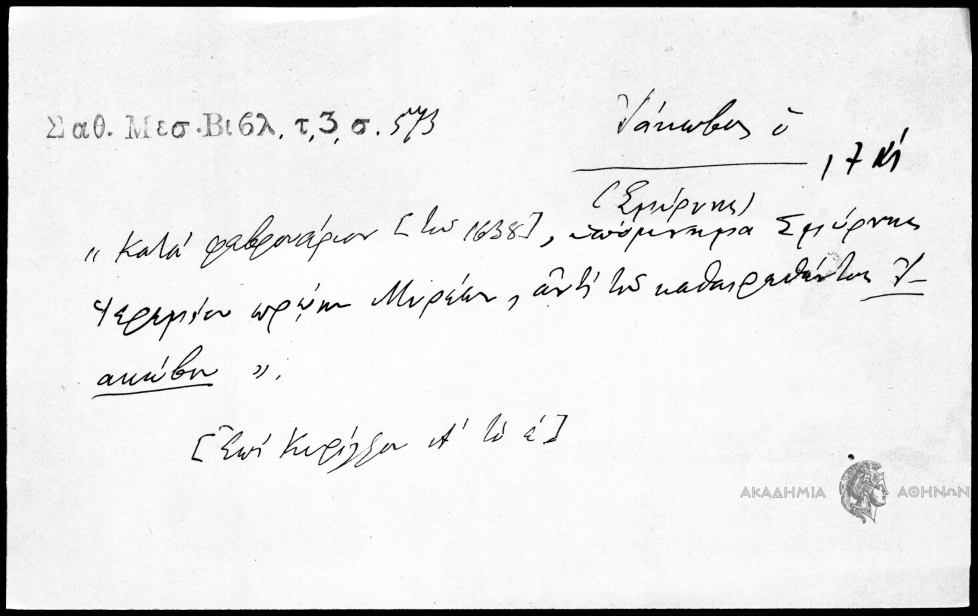 Σαθ. Μεσ. Βιβλ. τ, 3, σ. 573
Ἰάκωβος ὁ
, 17
(Σμύρνης)
“ Κατά φαβρουάριον [τοῦ 1638], ὑπόμνημα Σμύρνης
Ἱερεμίου πρῴην Μυρέων, ἀντί τοῦ καθαιρεθέντος Ἰ-
ακώβου ”.
[Ἐπί Κυρίλλου Α' τό ε']
ΑΚΑΔΗΜΙΑ ΑΘΗΝΩΝ